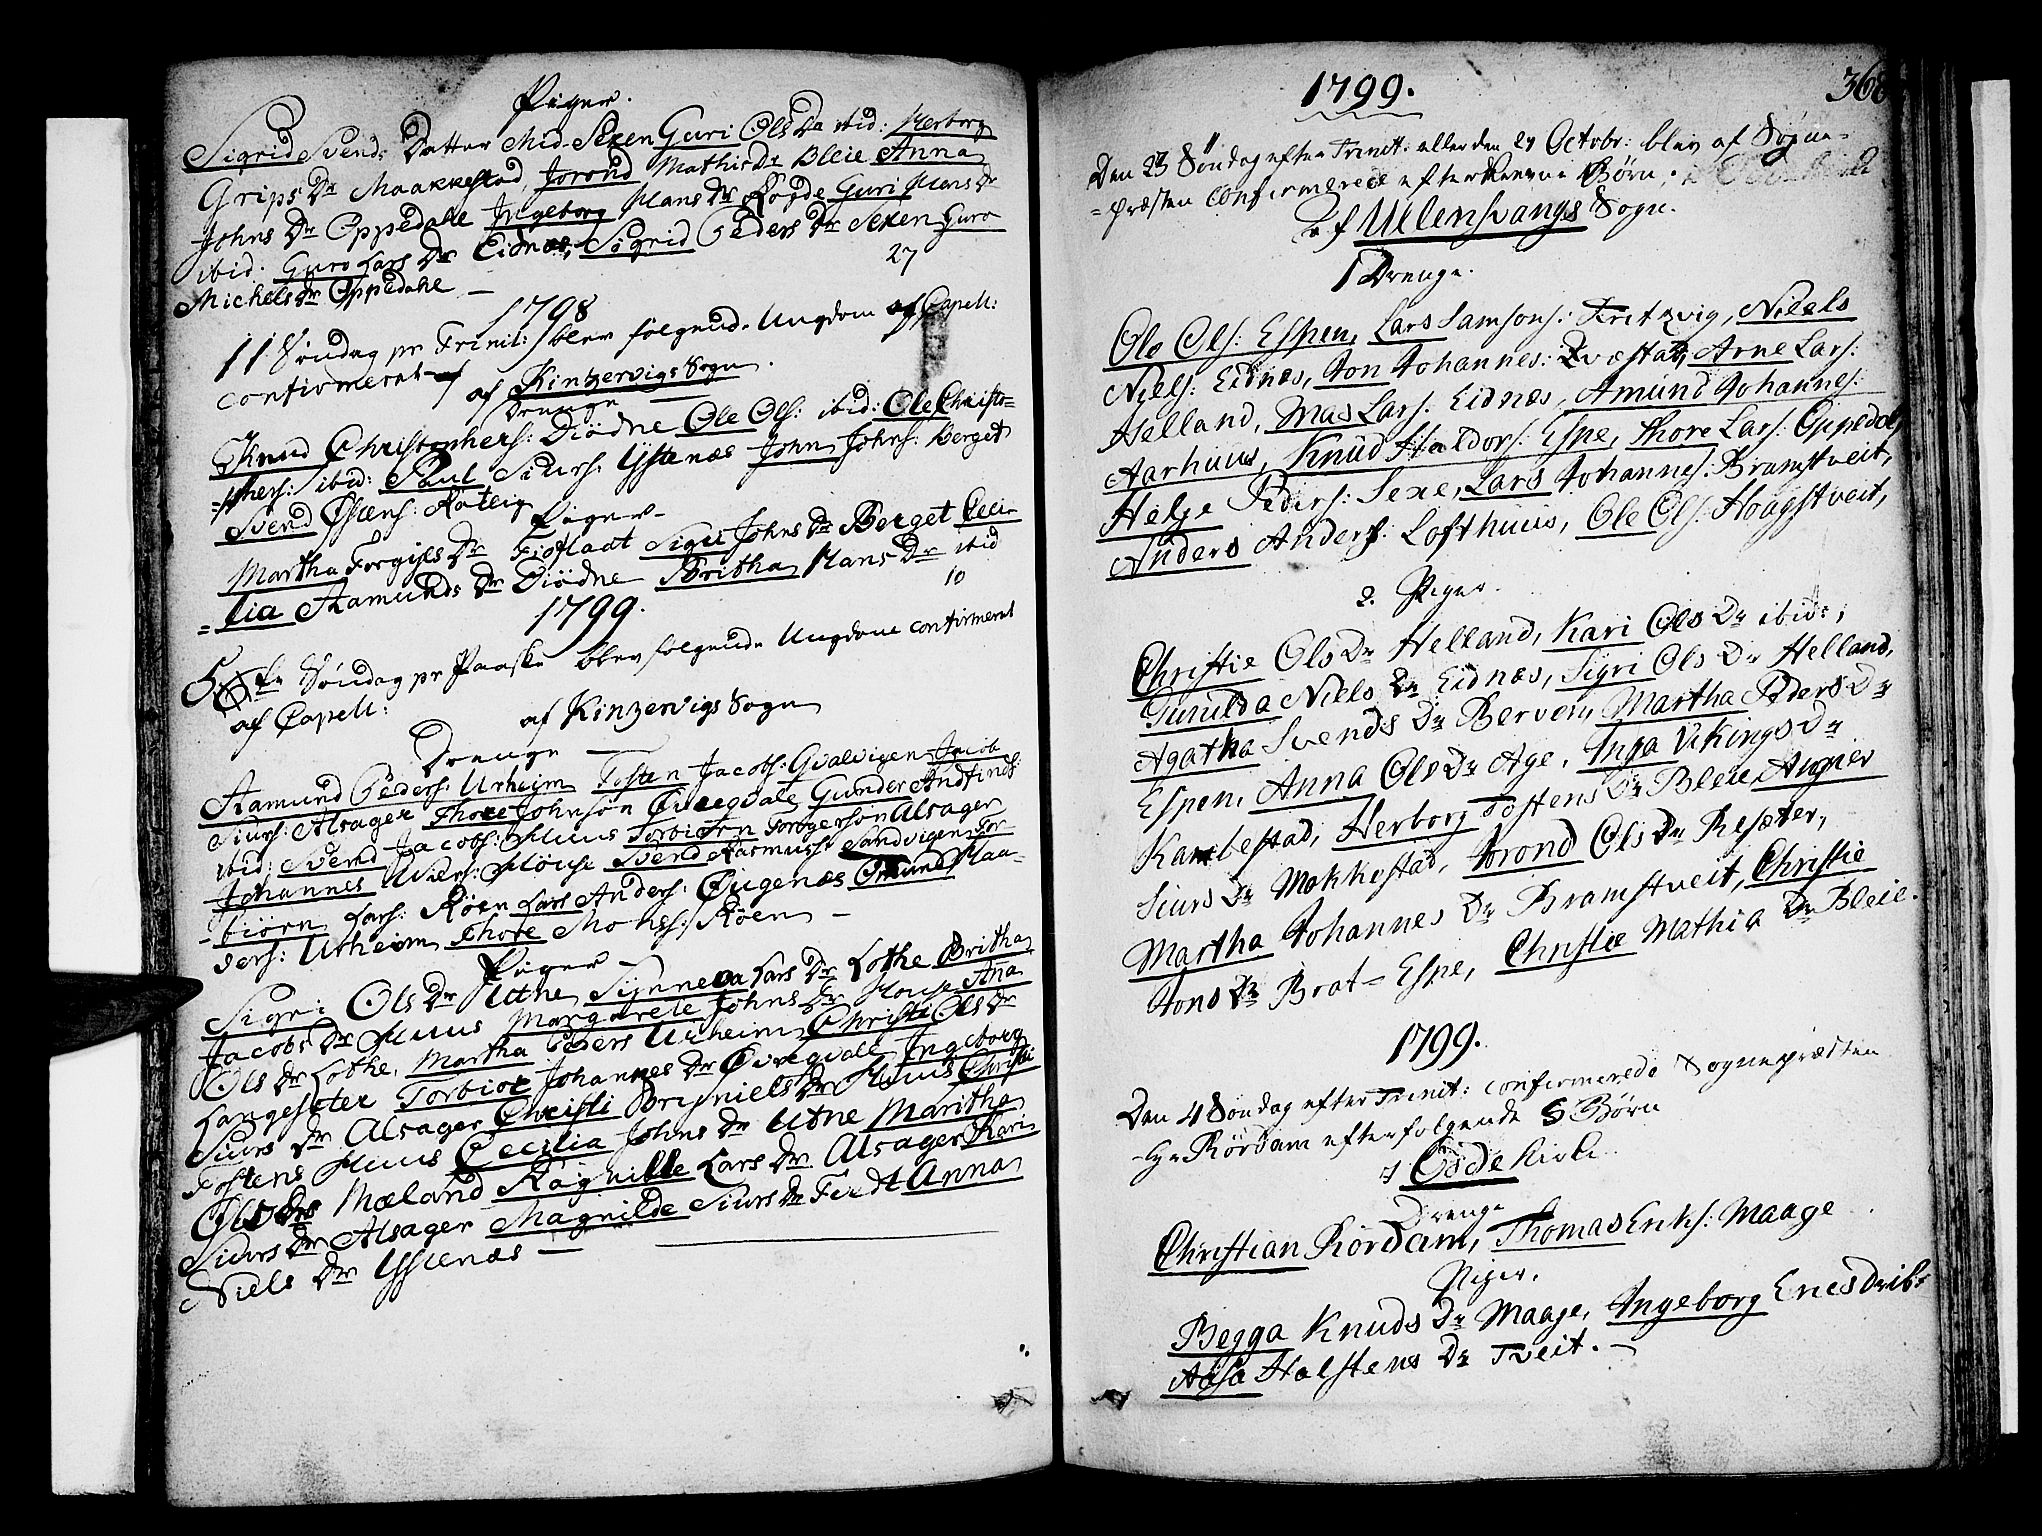 Piger.
Sigrid Svends Datter Mid-Sexen Guri Ols Da ibid: Herborg
Grips Dr Maakkestad, Jorond Mathis Dr Bleie Anna
Johns Dr Oppedahl Ingeborg Hans Dr Rogde Guri Hans Dr
ibid. Guro Lars Dr Eidnæs, Sigrid Peders Dr Sexen Guro
Michels Dr Oppedahl — 27
1798
11 Søndag pr Trinit: blev følgende Ungdom af Capell:
confirmeret
af Kinzervigs Sogn.
Drenge
Knud Christophers: Diödne Ole Ols: ibid: Ole Christo=
=phers: ibid: Paul Siurs: Ystenæs John Johns: Berget
Svend Østens: Røteig
Piger
Martha Torgils Dr Tiofladt Sigri Johns Dr Berget Ceci-
=lia Aamunds Dr Diödne Britha Hans Dr ibid
10
1799.
5te Søndag pr Paaske blev følgende Ungdom confirmeret
af Capell: af Kinzervigs Sogn
Drenge
Aamund Peders: Urheim Tosten Jacobs: Qvalvigen Jacob
Siurs: Alsager Thore Johnson Qvregvale Gunder Andfinds:
ibid; Svend Jacobs: Huus Torbiörn Torgerson Alsager
Johannes Iver: House Svend Rasmus: Sandvigen Tor-
-biörn Lars: Röen Lars Anders: Øigenæs Omund Haa-
vers: Urheim Thore Mons: Röen —
Piger —
Sigri Ols Dr Uthe Synneva Lars Dr Lothe Britha
Jacobs Dr Huus Margarete Johns Dr House Anna
Ols Dr Lothe, Martha Peders Urheim Christi Ols Dr
Langesæter Torbior Johannes Dr Qvregvale Ingeborg
Siurs Dr Alsager Christi Bryniels Dr Huus Christi
Tostens Huus Cecilia Johns Dr Utne Maritha
Ols Drs Mæland Ragnille Lars Dr Alsager Kari
Siurs Dr Alsager Magnilde Siurs Dr Tvedt Anna
Niels Dr Ystenæs —
368
1799.
Den 23 Søndag efter Trinit: eller den 27 Octobr: blev af Sogne=
=præsten confirmerede efterskrevne Börn,
af Ullensvangs Sogn.
1 Drenge.
Ole Ols: Espen, Lars Samsons: Tritzvig, Niels
Niels: Eidnæs, Jon Johannes: Qvæstad, Arne Lars:
Helland, Mas Lars: Eidnæs, Amund Johannes:
Aarhuus, Knud Haldors: Espe, Thore Lars: Oppedal
Helge Peders: Sexe, Lars Johannes: Bramstveit,
Anders Anders: Lofthuus, Ole Ols: Hoagstveit,
2. Piger.
Christie Ols Dr Helland, Kari Ols Dr ibid:,
Gunilda Niels Dr Eidnæs, Sigri Ols Dr Helland,
Agatha Svends Dr Berven, Martha Peders Dr
Espen, Anna Ols Dr Age, Inga Vikings Dr
Kambestad, Herborg Tostens Dr Bleie Angier
Siurs Dr Mokkestad, Jorond Ols Dr Resæter,
Martha Johannes Dr Bramstveit, Christie
Jons Dr Brat=Espe, Christie Mathia Dr Bleie.
1799.
Den 4 Søndag efter Trinit: confirmerede Sognepræsten
Hr Rördam efterfølgende 5 Börn
i Odde Kirke
Drenge
Christian Rördam, Thomas Eriks: Maage
Piger.
Begga Knuds Dr Maage, Ingeborg Erics Dr ib:
Aasa Halstens Dr Tveit. —